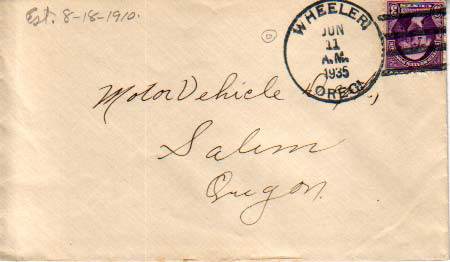 Est. 8-18-1910.
WHEELER
JUN
11
A.M.
1935
OREG.
Motor Vehicle
Salem
Oregon.